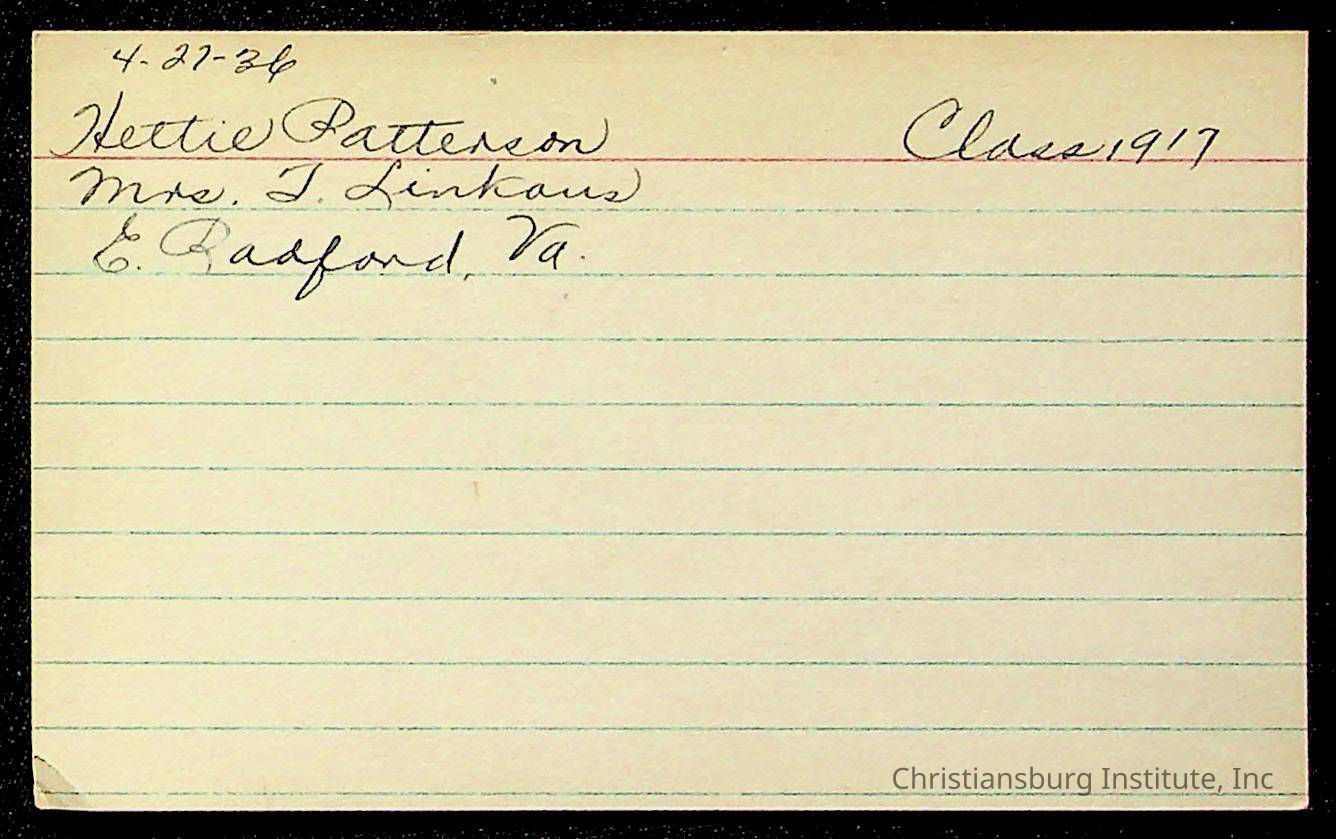 4-27-36
Hettie Patterson Class 1917
Mrs. T. Linkous
E. Radford, Va.
Christiansburg Institute, Inc